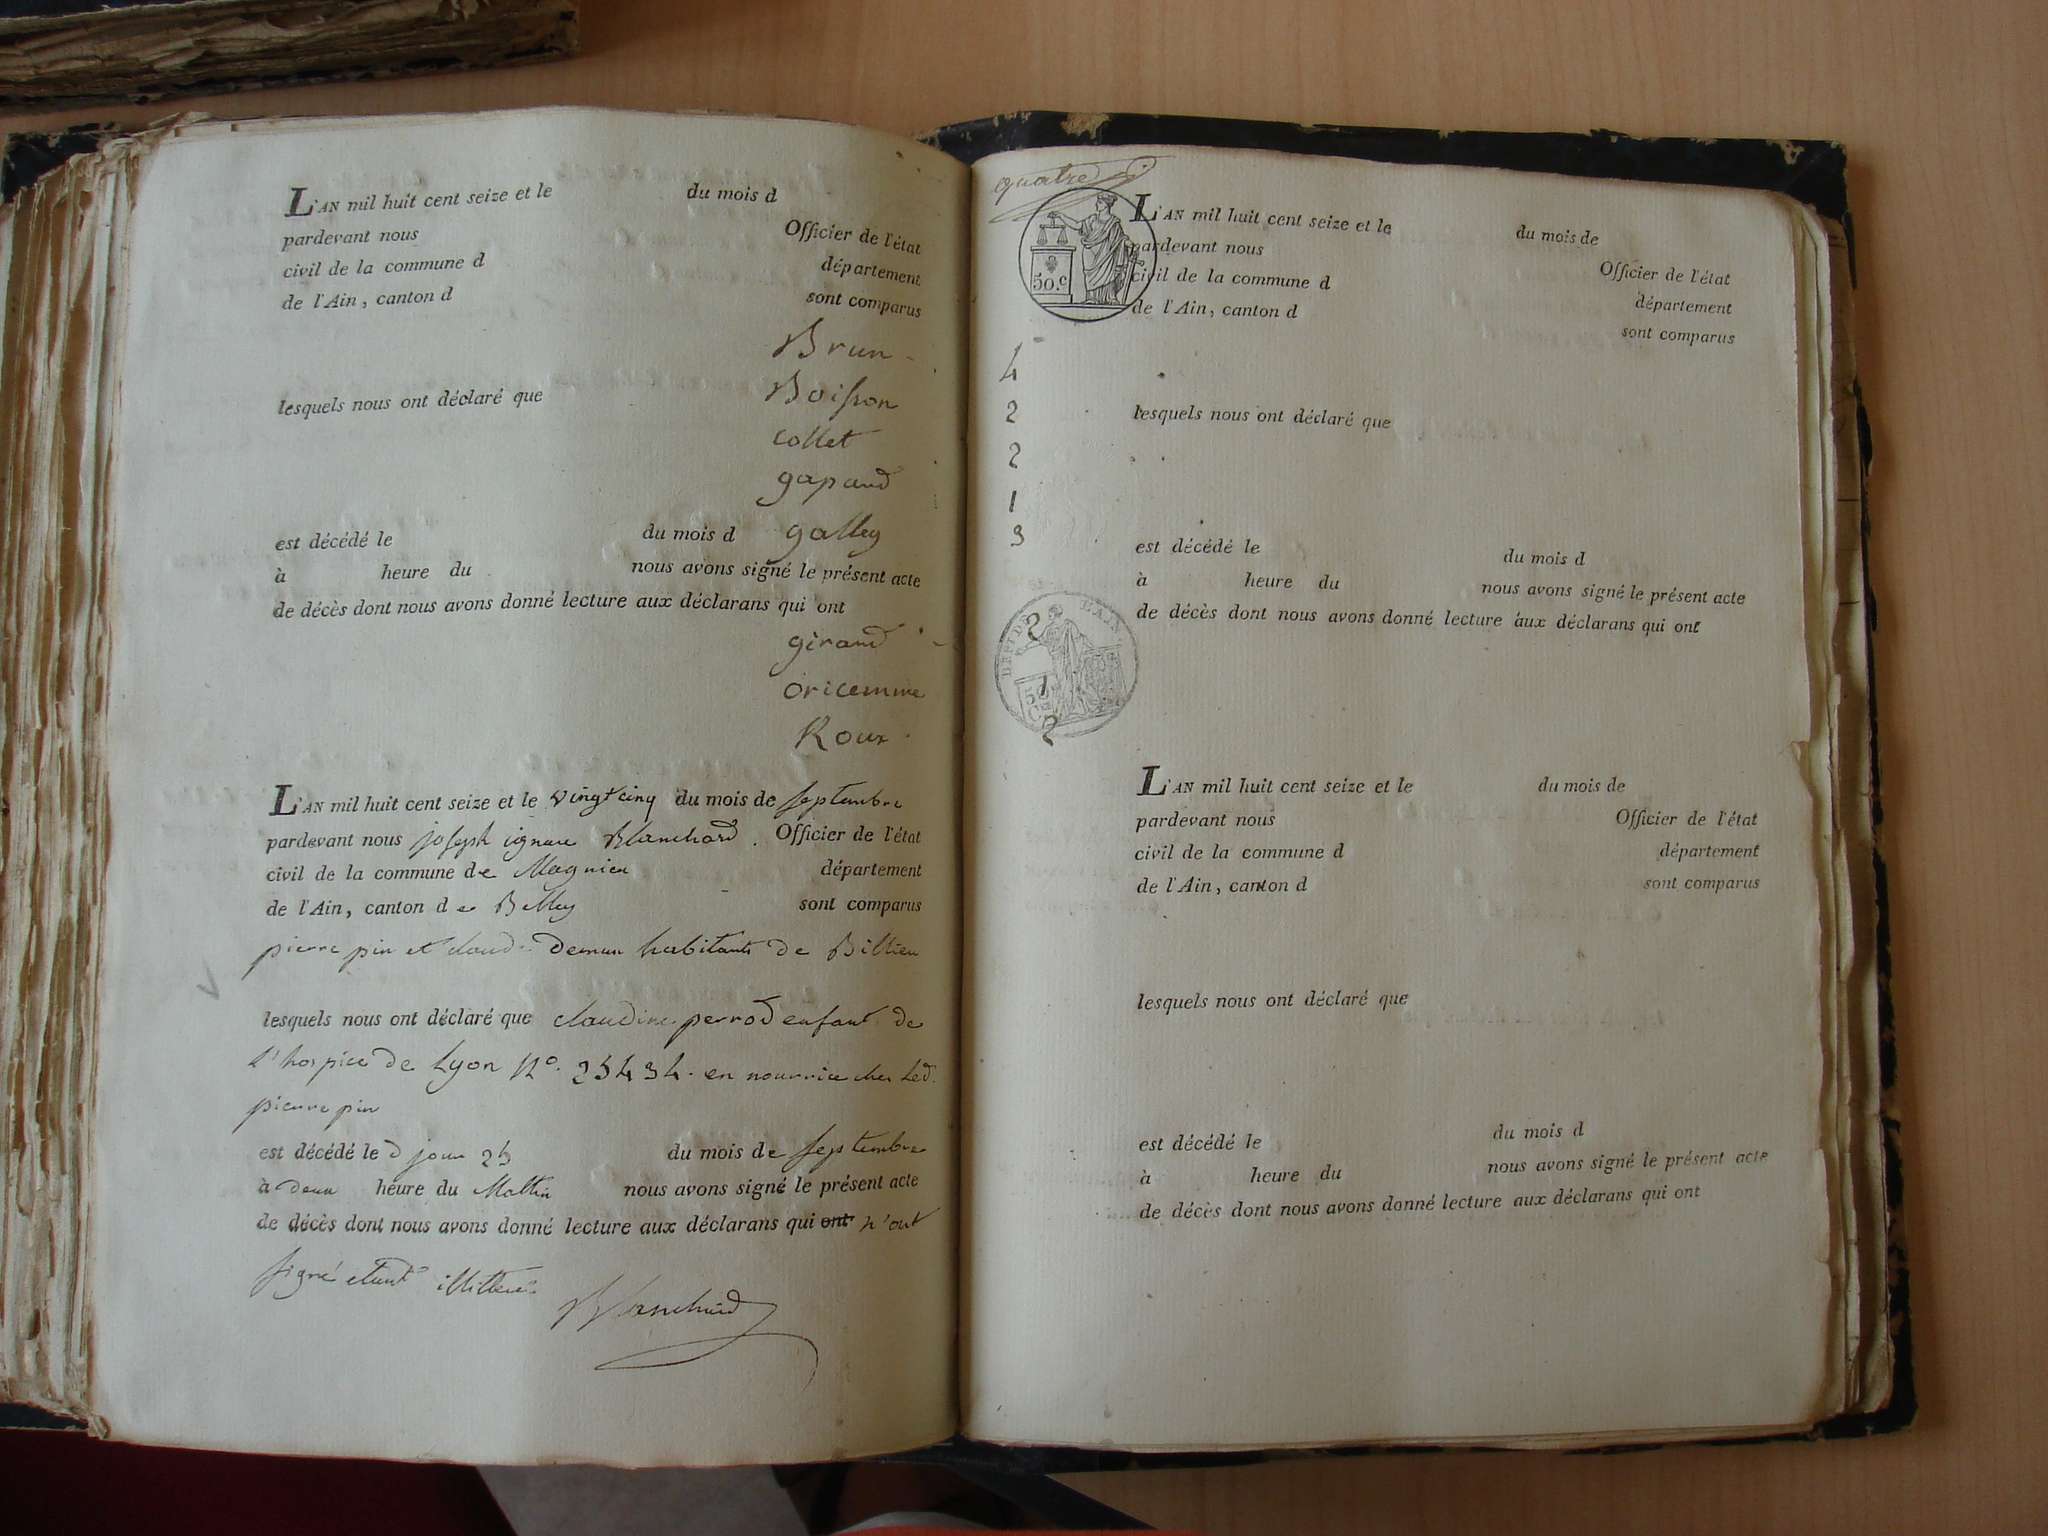 L'AN mil huit cent seize et le du mois d
pardevant nous Officier de l'état
civil de la commune d département
de l'Ain, canton d sont comparus
Brun
Boisson
lesquels nous ont déclaré que
Collet
gapaud
est décédé le du mois d galley
à heure du nous avons signé le présent acte
de décès dont nous avons donné lecture aux déclarans qui ont
giraud
oricemme
Roux
L'AN mil huit cent seize et le vingt cinq du mois de septembre
pardevant nous joseph ignace Blanchard. Officier de l'état
civil de la commune de Magnieu département
de l'Ain, canton de Belley sont comparus
pierre pin et claude habitants de Billieu
lesquels nous ont déclaré que claudine perrod enfant de
l'hospice de Lyon N° 25434. en nourrice chez led.
pierre pin
est décédé le d jour 25 du mois de septembre
à deux heure du Mattin nous avons signé le présent acte
de décès dont nous avons donné lecture aux déclarans qui ont n'ont
signé etant illitteré
Blanchard
quatre
50.c
L'AN mil huit cent seize et le du mois de
pardevant nous Officier de l'état
civil de la commune d département
de l'Ain, canton d sont comparus
4
2
lesquels nous ont déclaré que
2
1
3
est décédé le du mois d
à heure du nous avons signé le présent acte
de décès dont nous avons donné lecture aux déclarans qui ont
2
DEPT DE L'AIN
1
50 C
2
L'AN mil huit cent seize et le du mois de
pardevant nous Officier de l'état
civil de la commune d département
de l'Ain, canton d sont comparus
lesquels nous ont déclaré que
est décédé le du mois d
à heure du nous avons signé le présent acte
de décès dont nous avons donné lecture aux déclarans qui ont